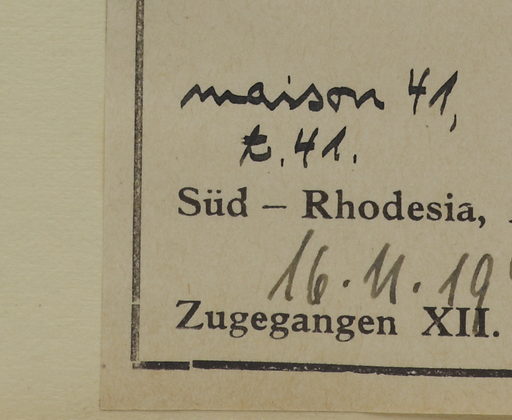 maison 41,
t. 41.
Süd – Rhodesia,
16. 11. 19
Zugegangen XII.